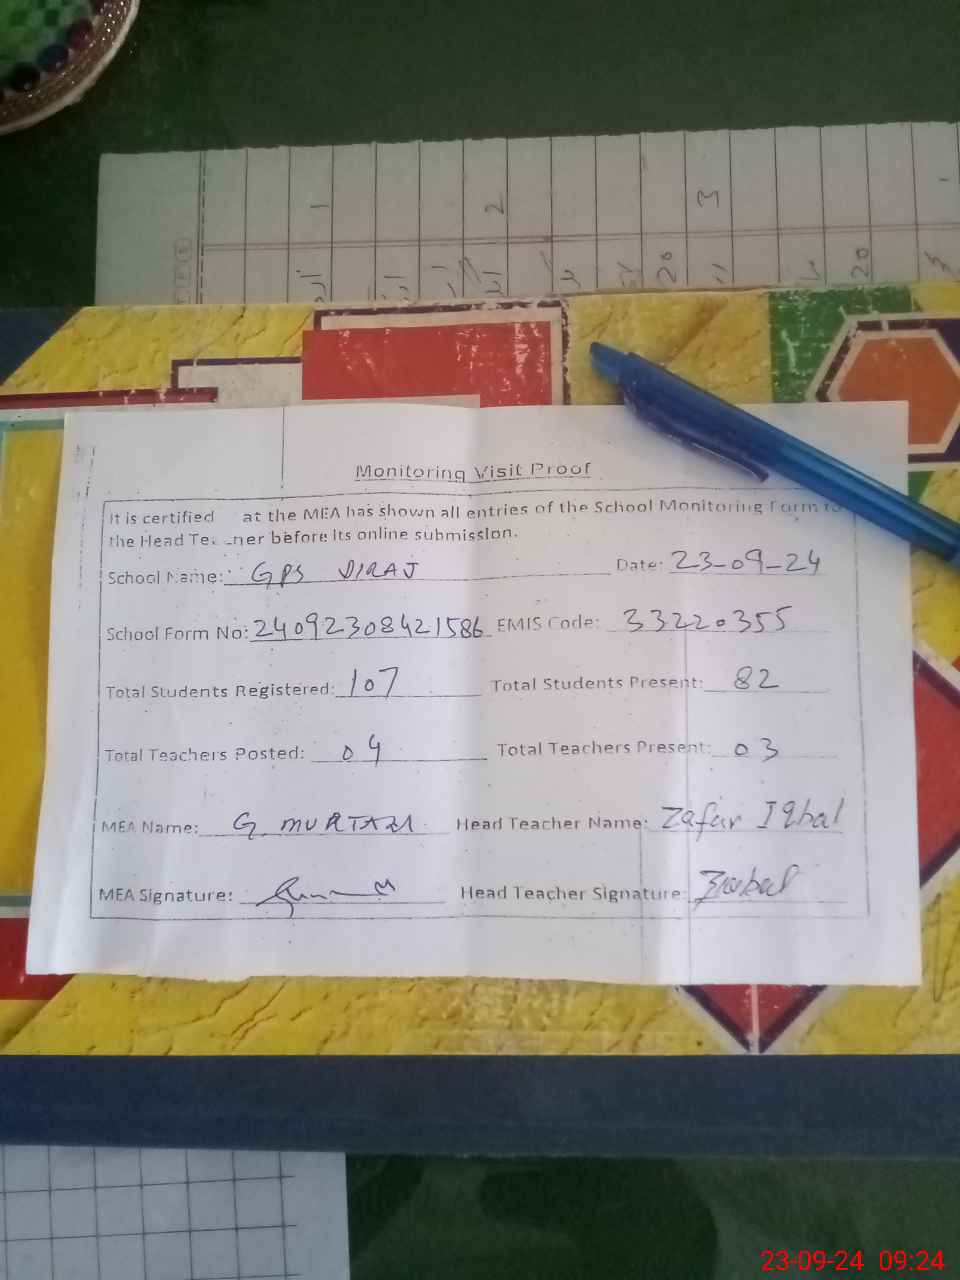 1 2 3
20 20
Monitoring Visit Proof
It is certified at the MEA has shown all entries of the School Monitoring Form to
the Head before its online submission.
School Name: GPS DIRAJ Date: 23-09-24
School Form No: 24092308421586 EMIS Code: 33220355
Total Students Registered: 107 Total Students Present: 82
Total Teachers Posted: 04 Total Teachers Present: 03
MEA Name: G. MURTAZA Head Teacher Name: Zafar Iqbal
MEA Signature: Head Teacher Signature:
23-09-24 09:24